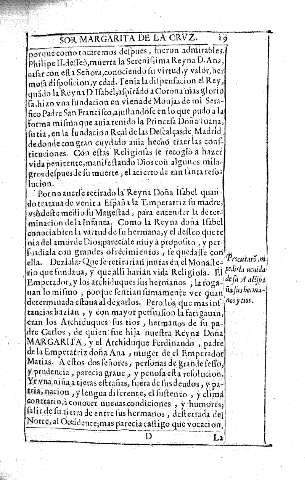 SOR MARGARITA DE LA CRVZ. 19
porque como tocaremos despues, fueron admirables.
Philipe II. desseò, muerta la Serenissima Reyna D. Ana,
casar con esta Señora, conociendo su virtud, y valor, her
mosa disposicion, y edad. Tenia la dispensacion el Rey,
quãdo la Reyna D. Isabel, aspirãdo a Corona mas glorio
sa, hizo vna fundacion en vienade Monjas de mi Sera-
fico Padre San Francisco, ajustandose en lo que pudo a la
forma misma que auia tenido la Princesa Doña Iuana,
su tia, en la fundacion Real de las Descalças de Madrid,
de donde con gran cuydado auia hecho traer las con-
stituciones. Con estas Religiosas se recogio a hazer
vida penitente, manifestando Dios con algunos mila-
gros despues de su muerte, el acierto de tan santa reso-
lucion.
Por no auerse retirado la Reyna Doña Isabel quan-
do tratauan de venir a España la Emperatriz su madre,
vsò deste medio su Magestad, para entender la deter-
minacion de la Infanta. Como la Reyna Doña Isabel
conocia bien la virtud de su hermana, y el desseo que te
nia del amor de Dios, pareciale muy a proposito, y per-
suadiala con grandes ofrecimientos, se quedasse con
ella. Deziala: Que se retirarian juntas en el Monaste-
rio que fundaua, y que alli harian vida Religiosa. El
Emperador, y los Archiduques sus hermanos, la roga-
uan lo mismo, porque sentian sumamente ver quan
determinada estaua al dexarlos. Pero los que mas ins-
tancias hazian, y con mayor persuasion la fatigauan,
eran los Archiduques sus tios, hermanos de su pa-
dre Carlos, de quien fue hija nuestra Reyna Doña
MARGARITA, y el Archiduque Ferdinando, padre
de la Emperatriz Doña Ana, muger de el Emperador
Matias. A estos dos señores, personas de grande sesso,
y prudencia, parecia graue, y penosa esta resolucion.
Yr vna niña a tierras estrañas, fuera de sus deudos, y pa-
tria, nacion, y lengua diferente, el sustento, y clima
contrario, à conocer nueuas condiciones, y humores;
salir de su tierra de entre sus hermanos, desterrada del
Norte, al Occidente, mas parecia castigo que vocacion,
D
La
Procuraró im
pedirla
de sa Alteza
ña sus herma-
nos y tios.